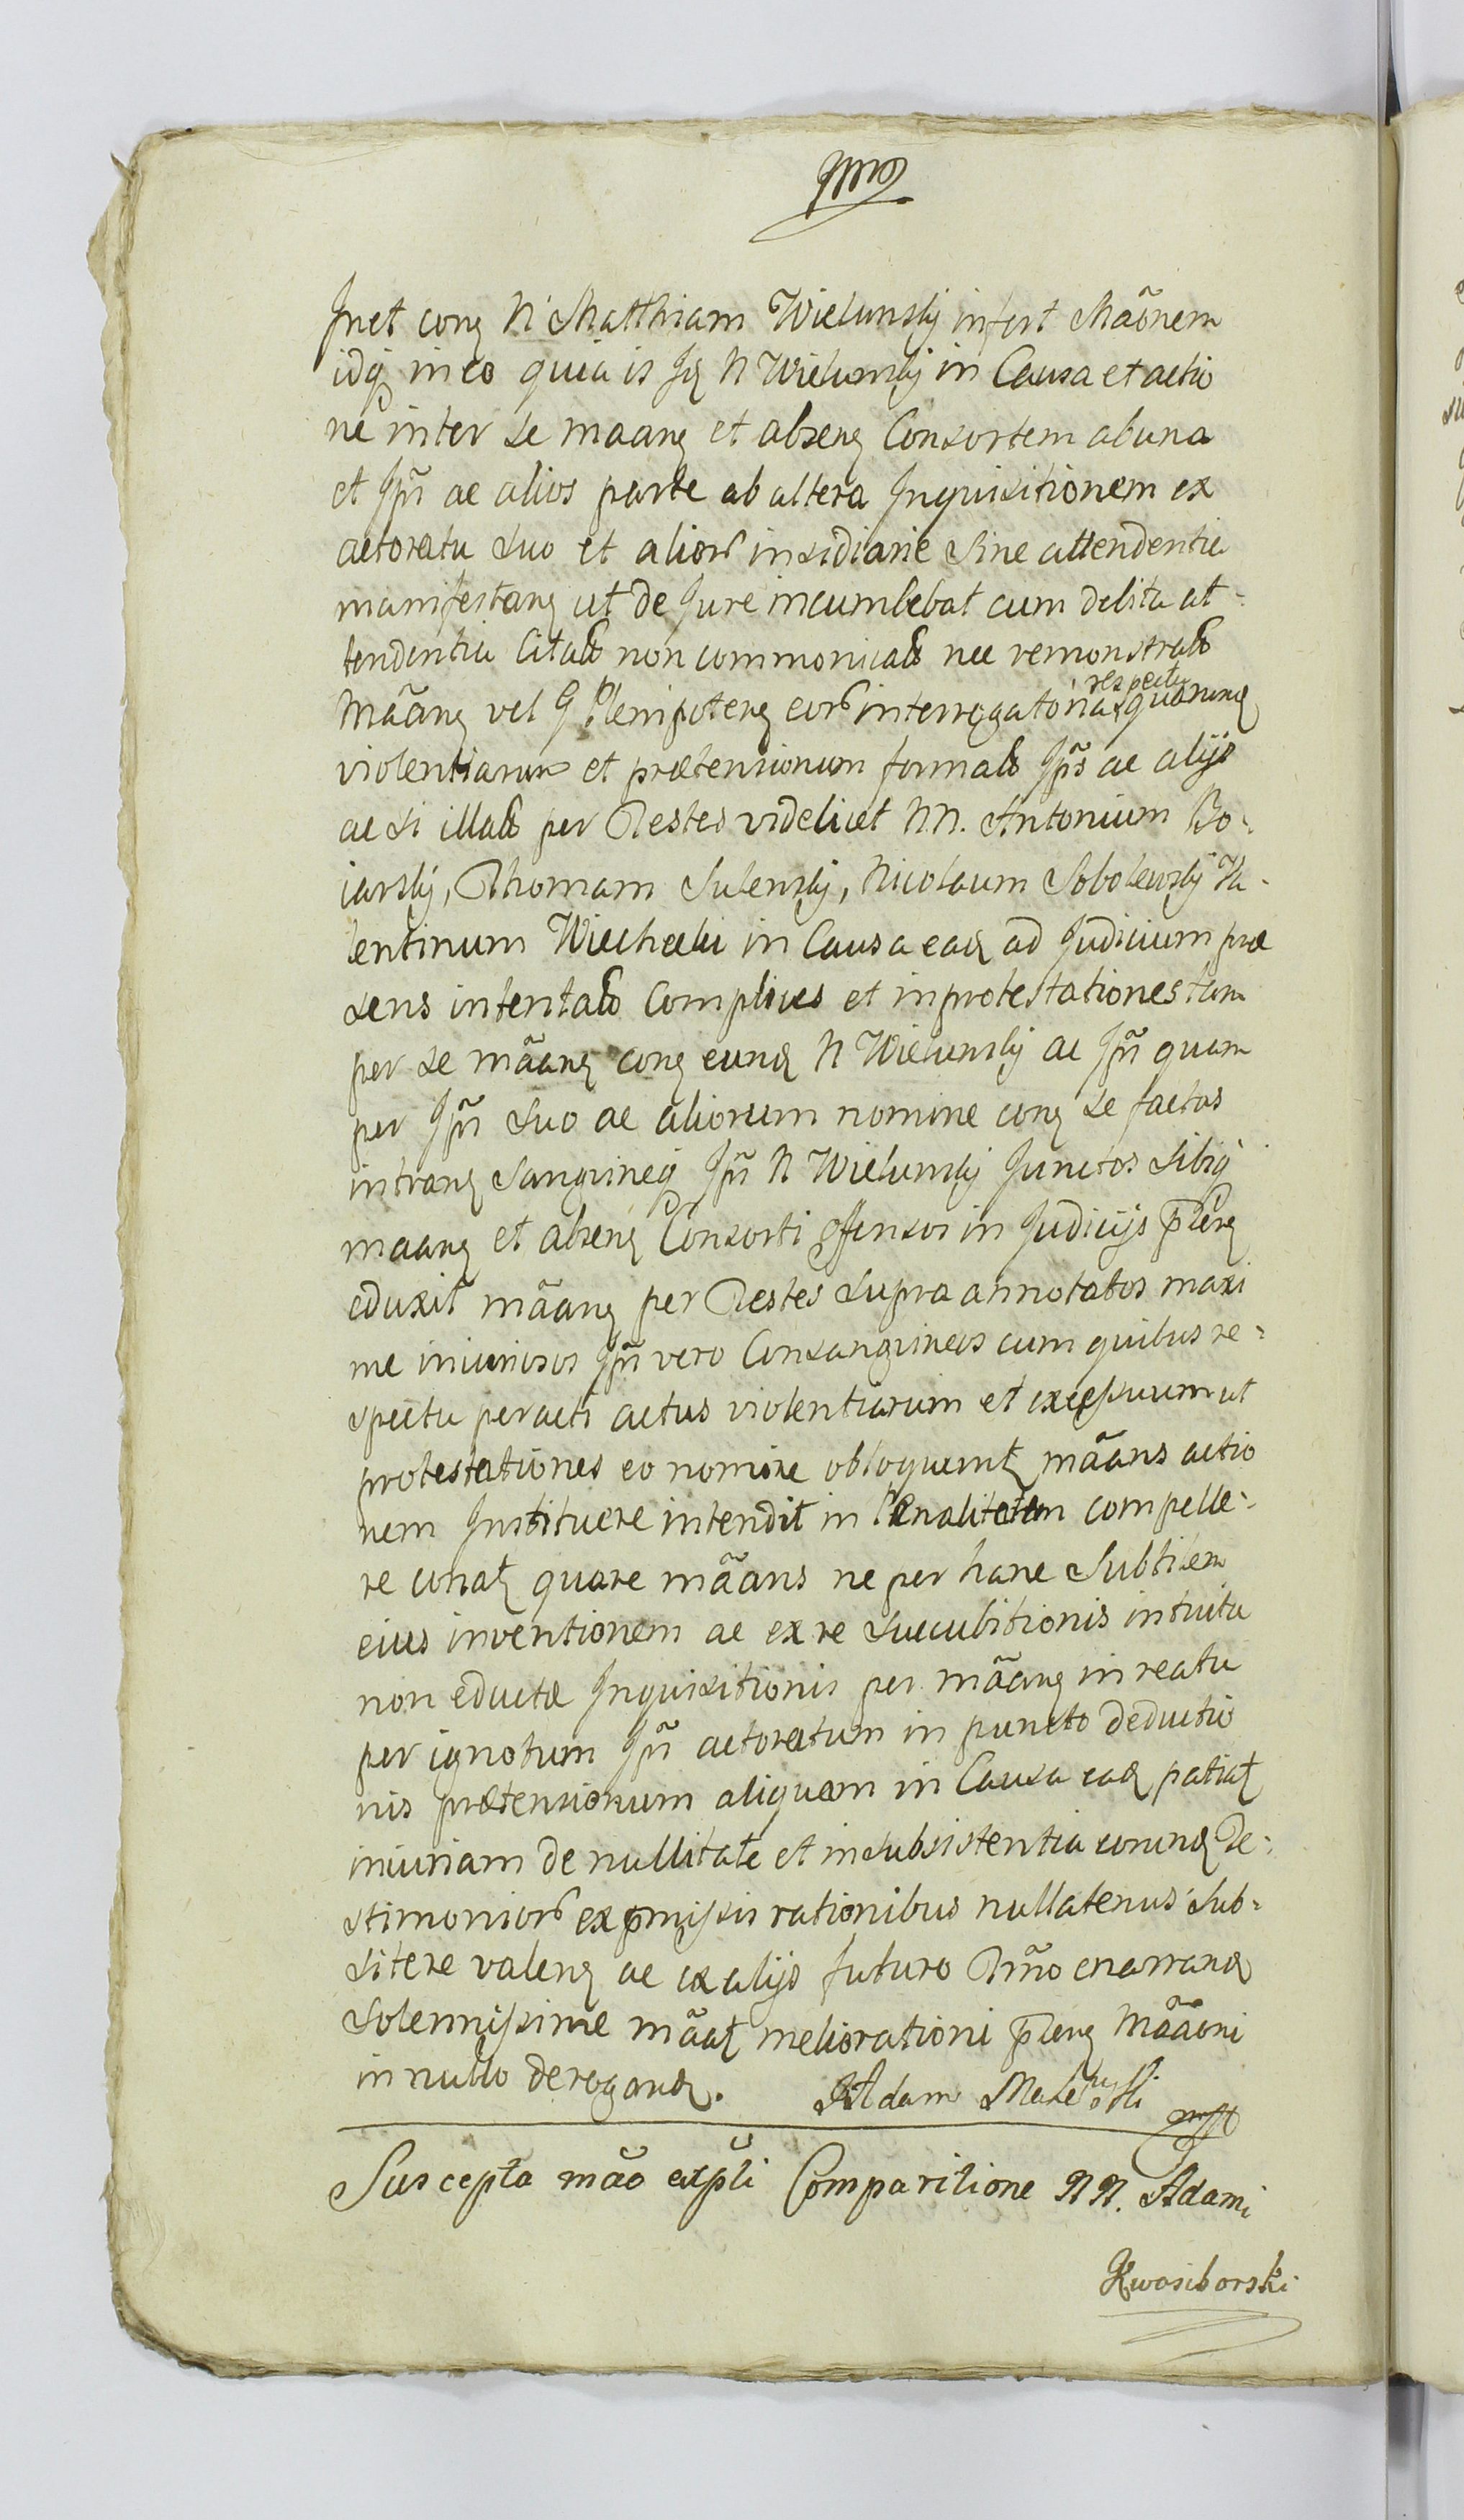 Jnet cong N Matthiam Wielunsky infert Mãonem
idq in eo quia is Jd N Wielunsky in Causa et actio
ne inter se maang et abseng Consortem ab una
et Jpñ ac alios parte ab altera Jnquisitionem ex
actoratu suo et alior insidiarie sine attendentia
manifestang ut de Jure incumbebat cum debita at-
tendentia Citato non commonicato nec remonstrato
Mãang vel G Plenipoteng eor interrogatoria respectu quorund
violentiarum et prætensionum format Jpõ ac alijs
ac si illato per Testes videlicet N.N. Antonium Bo-
iarsky, Thomam Sulensky, Nicolaum Sobolewsky Va-
lentinum Wiechecki in Causa ead ad Judicium præ
sens intentato Complices et in protestationes tam
per se mãang cong eund N Wielunsky ac Jpñ quam
per Jpñ suo ac aliorum nomine cong se factas
intrang Sangvineq Jpñ N Wielunsky Junctos sibiq
maang et abseng Consorti offensos in Judicijs p̃teng
eduxit mãang per Testes supra annotatos maxi
me iniuriosos Jpñ vero Consangvineos cum quibus re-
spectu peracti actus violentiarum et excessuum ut
protestationes eo nomine obloquunt mãans actio
nem Jnstituere intendit in Penalitatem compelle-
re conat quare mãans ne per hanc Subtilem
eius inventionem ac ex re succubitionis intuitu
non eductæ Jnquisitionis per mãang in reatu
per ignotum Jpñ actoratum in puncto deductio
nis prætensionum aliquam in Causa ead patiat
iniuriam de nullitate et insubsistentia eorund Te-
stimonior ex p̃missis rationibus nullatenus Sub-
sitere valeng ac ex alijs futuro Trño enarrand
Solennissime mãat meliorationi p̃teng Mãaoni
in nullo derogand.
Adam mp
Suscepta mão exp̃li Comparitione NN. Adami
Kwasiborski